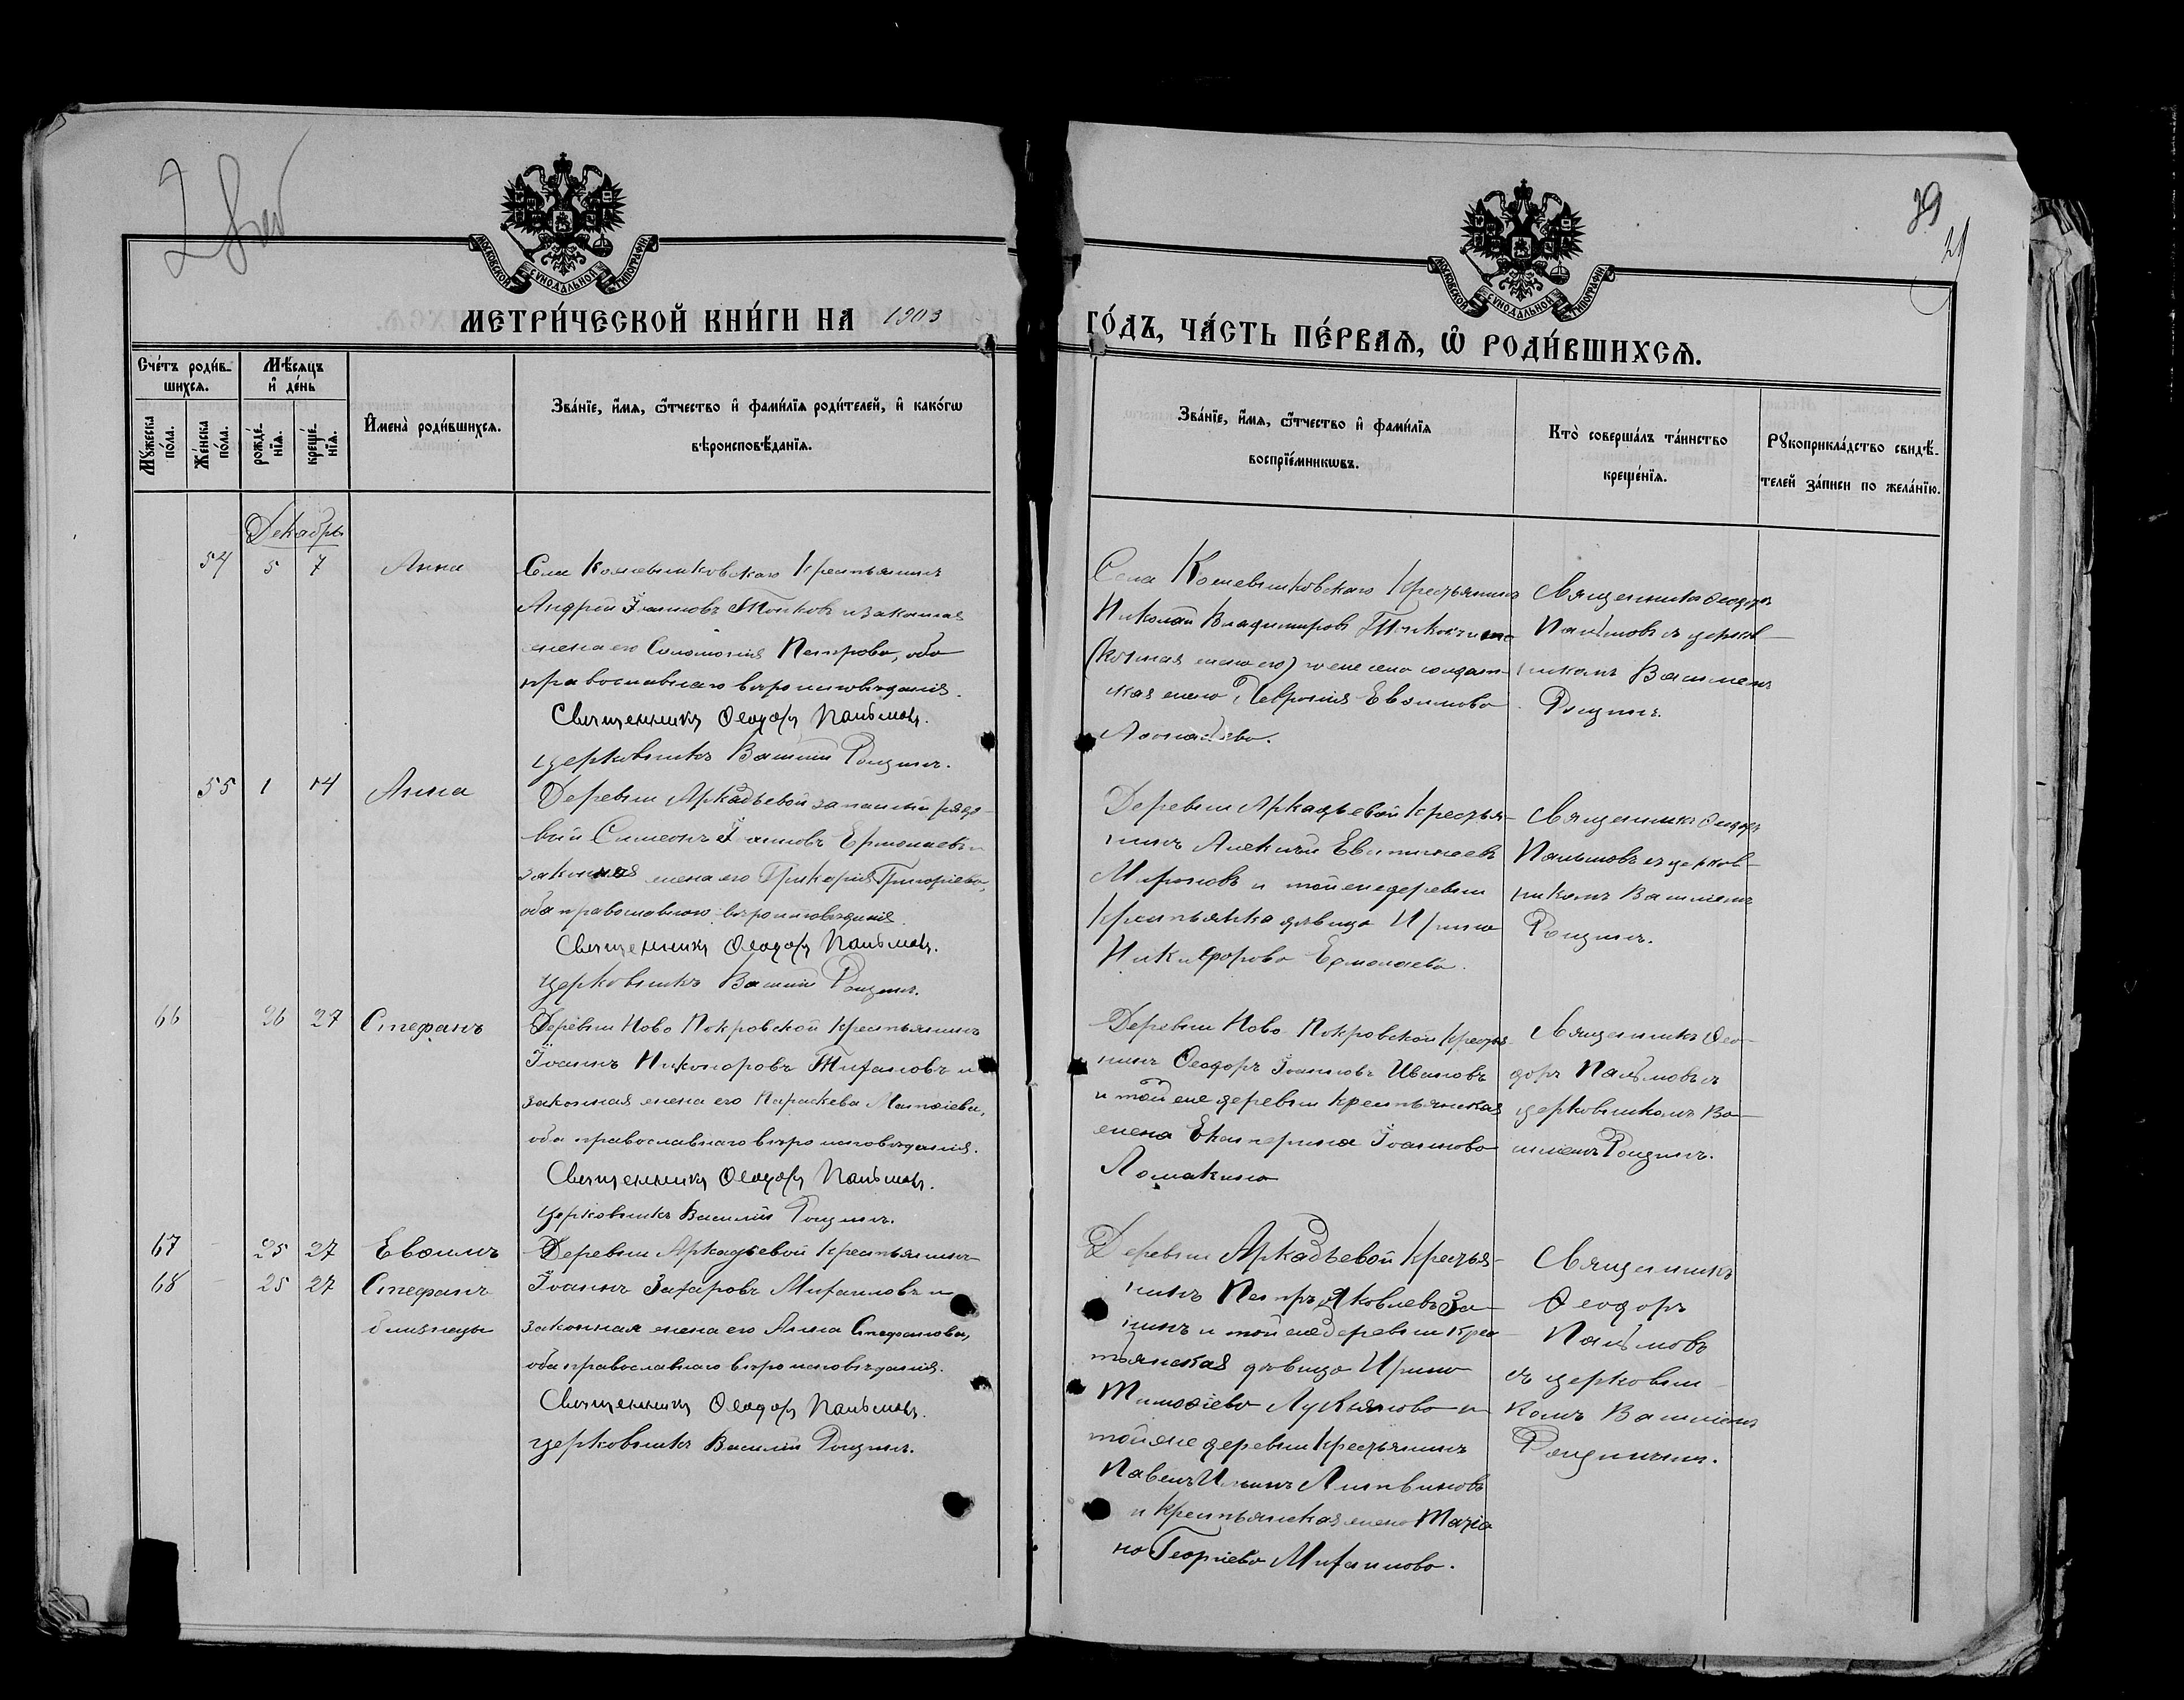 39
21
МОСКОВСКОЙ СУНОДАЛЬНОЙ ТИПОГРАФІИ
МОСКОВСКОЙ СУНОДАЛЬНОЙ ТИПОГРАФІИ
МЕТРИ́ЧЕСКОЙ КНИ́ГИ НА 1903
ГО́ДЪ, ЧА́СТЬ ПЕ́РВАѦ, Ѡ҆ РОДИ́ВШИХСѦ.
Сче́тъ роди́в-
шихсѧ.
Мꙋ́жеска по́ла.
Же́нска по́ла.
Мѣ́сѧцъ и҆ де́нь
рожде́-нїѧ.
креще́-нїѧ.
И҆мена̀ роди́вшихсѧ.
Зва́нїе, и҆́мѧ, ѻ҆́тчество и҆ фами́лїѧ роди́телей, и҆ како́гѡ
вѣроисповѣ́данїѧ.
Зва́нїе, и҆́мѧ, ѻ҆́тчество и҆ фами́лїѧ
воспрїе́мникѡвъ.
Кто̀ соверша́лъ та́инство
креще́нїѧ.
Рꙋкоприкла́дство свидѣ́-
телей за́писи по жела́нїю.
Декабрь
54 5 7 Анна
Села Крестьянинъ
Андрей Іоанновъ и законная
жена его Соломонія Петрова, оба
православнаго вѣроисповѣданія.
Священникъ Ѳеодоръ Пальмовъ.
церковникъ Василій Рощинъ.
Села Крестьянинъ
Николай Владимировъ
(законная жена его) солдат-
ская жена Ѳевронія Евѳимова
Священникъ Ѳеодоръ
Пальмовъ съ церков-
никомъ Василіемъ
Рощинъ.
55 1 14 Анна
Деревни Аркадьевой запасный рядо-
вый Симеонъ Іоанновъ Ермолаевъ и
законная жена его Гликерія Григоріева,
оба православнаго вѣроисповѣданія.
Священникъ Ѳеодоръ Пальмовъ.
церковникъ Василій Рощинъ.
Деревни Аркадьевой Крестья-
нинъ Алексій
Мироновъ и той же деревни
Крестьянка дѣвица Ирина
Никифорова Ермолаева.
Священникъ Ѳеодоръ
Пальмовъ съ церков-
никомъ Василіемъ
Рощинъ.
66 26 27 Стефанъ
Деревни Ново Покровской Крестьянинъ
Іоаннъ Никоноровъ и
законная жена его Параскева Матѳіева,
оба православнаго вѣроисповѣданія.
Священникъ Ѳеодоръ Пальмовъ.
Церковникъ Василій Рощинъ.
Деревни Ново Покровской Крестья-
нинъ Ѳеодоръ Іоанновъ Ивановъ
и той же деревни Крестьянская
жена Екатерина Іоаннова
Ломакина
Священникъ Ѳео-
доръ Пальмовъ съ
церковникомъ Ва-
силіемъ Рощинъ.
67 25 27 Евѳимъ
68 25 27 Стефанъ
близнецы
Деревни Аркадьевой Крестьянинъ
Іоаннъ Захаровъ Михаиловъ и
законная жена его Анна Стефанова,
оба православнаго вѣроисповѣданія.
Священникъ Ѳеодоръ Пальмовъ.
церковникъ Василій Рощинъ.
Деревни Аркадьевой Крестья-
нинъ Петръ Яковлевъ За-
нинъ и той же деревни Крес-
тьянская дѣвица Ирина
Тимоѳіева Лукьянова и
той же деревни Крестьянинъ
Павелъ Ильинъ Литвиновъ
и Крестьянская жена Татіа-
на Георгіева Михаилова.
Священникъ
Ѳеодоръ
Пальмовъ
съ церковни-
комъ Василіемъ
Рощинымъ.